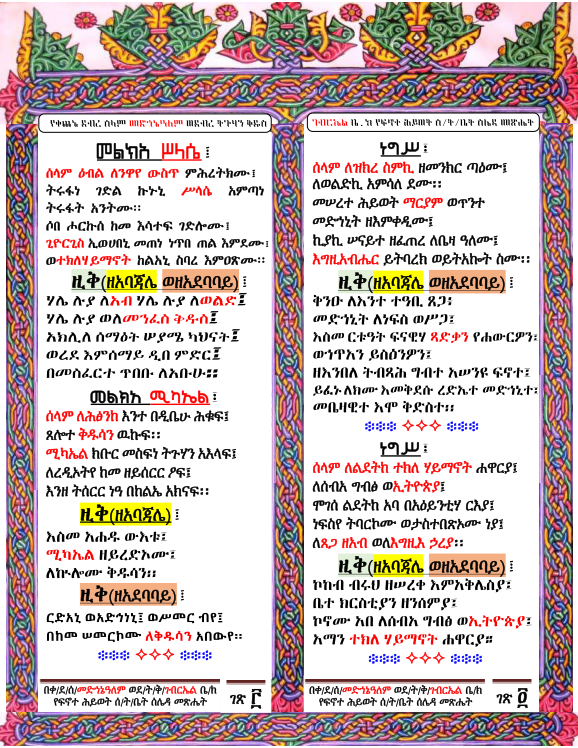 የቀጨኔ ደብረ ሰላም መድኀኔዓለም ወደብረ ትጉሃን ቅዱስ
መልክአ ሥላሴ ፤
ሰላም ዕብል ለንዋየ ውስጥ ምሕረትክሙ፤
ትሩፋነ ገድል ኩኑኒ ሥላሴ አምጣነ
ትሩፋት አንትሙ።
ሶበ ሖርኩሰ ከመ እሳተፍ ገድሎሙ፤
ጊዮርጊስ ኢወሀበኒ መጠነ ነጥበ ጠል እምደሙ፤
ወተክለሃይማኖት ከልአኒ ስባረ እምዐጽሙ።
ዚቅ(ዘአባጃሌ ወዘአደባባይ)፤
ሃሌ ሉያ ለአብ ሃሌ ሉያ ለወልድ፤
ሃሌ ሉያ ወለመንፈስ ቅዱስ፤
አክሊለ ሰማዕት ሠያሜ ካህናት፤
ወረደ እምሰማይ ዲበ ምድር፤
በመስፈርተ ጥበቡ ለአቡሁ።
መልክአ ሚካኤል ፤
ሰላም ለሕፅንከ እንተ በዲቤሁ ሕቁፍ፤
ጸሎተ ቅዱሳን ዉኩፍ።
ሚካኤል ክቡር መስፍነ ትጉሃን አእላፍ፤
ለረዲኦትየ ከመ ዘይሰርር ዖፍ፤
እንዘ ትሰርር ነዓ በክልኤ አክናፍ።
ዚቅ(ዘአባጃሌ) ፤
እስመ አሐዱ ውእቱ፤
ሚካኤል ዘይረድኦሙ፤
ለኵሎሙ ቅዱሳን።
ዚቅ(ዘአደባባይ) ፤
ርድአኒ ወአድኅነኒ፤ ወሥመር ብየ፤
በከመ ሠመርኮሙ ለቅዱሳን አበውየ።
በቀ/ደ/ሰ/መድኀኔዓለም ወደ/ት/ቅ/ገብርኤል ቤ/ክ
የፍኖተ ሕይወት ሰ/ት/ቤት ሰሌዳ መጽሔት
ገጽ ፫
ገብርኤል ቤ. ክ የፍኖተ ሕይወት ሰ/ት/ቤት ሰሌዳ መጽሔት
ነግሥ ፤
ሰላም ለዝክረ ስምኪ ዘመንክር ጣዕሙ፤
ለወልድኪ አምሳለ ደሙ።
መሠረተ ሕይወት ማርያም ወጥንተ
መድኀኒት ዘእምቀዲሙ፤
ኪያኪ ሠናይተ ዘፈጠረ ለቤዛ ዓለሙ፤
እግዚአብሔር ይትባረክ ወይትአኰት ስሙ።
ዚቅ(ዘአባጃሌ ወዘአደባባይ)፤
ቅንዑ ለእንተ ተዓቢ ጸጋ፤
መድኀኒት ለነፍስ ወሥጋ፤
እስመ ርቱዓት ፍናዊሃ ጻድቃን የሐውርዎን፤
ወኀጥአን ይስዕንዎን፤
ዘእንበለ ትብጻሕ ግብተ እሠንዩ ፍኖተ፤
ይፈኑ ለክሙ እመቅደሱ ረድኤተ መድኀኒተ፤
መቤዛዊተ እሞ ቅድስተ።
ነግሥ ፤
ሰላም ለልደትከ ተክለ ሃይማኖት ሐዋርያ፤
ለሰብአ ግብፅ ወኢትዮጵያ፤
ሞገሰ ልደትከ አባ በአዕይንቲሃ ርእያ፤
ነፍስየ ትባርኮሙ ወታስተበጽዖሙ ነያ፤
ለጸጋ ዘአብ ወለእግዚእ ኃረያ።
ዚቅ(ዘአባጃሌ ወዘአደባባይ)፤
ኮከብ ብሩህ ዘሠረቀ እምአቅሌስያ፤
ቤተ ክርስቲያን ዘንሰምያ፤
ኮኖሙ አበ ለሰብአ ግብፅ ወኢትዮጵያ፤
አማን ተክለ ሃይማኖት ሐዋርያ።
በቀ/ደ/ሰ/መድኀኔዓለም ወደ/ት/ቅ/ገብርኤል ቤ/ክ
የፍኖተ ሕይወት ሰ/ት/ቤት ሰሌዳ መጽሔት
ገጽ ፬